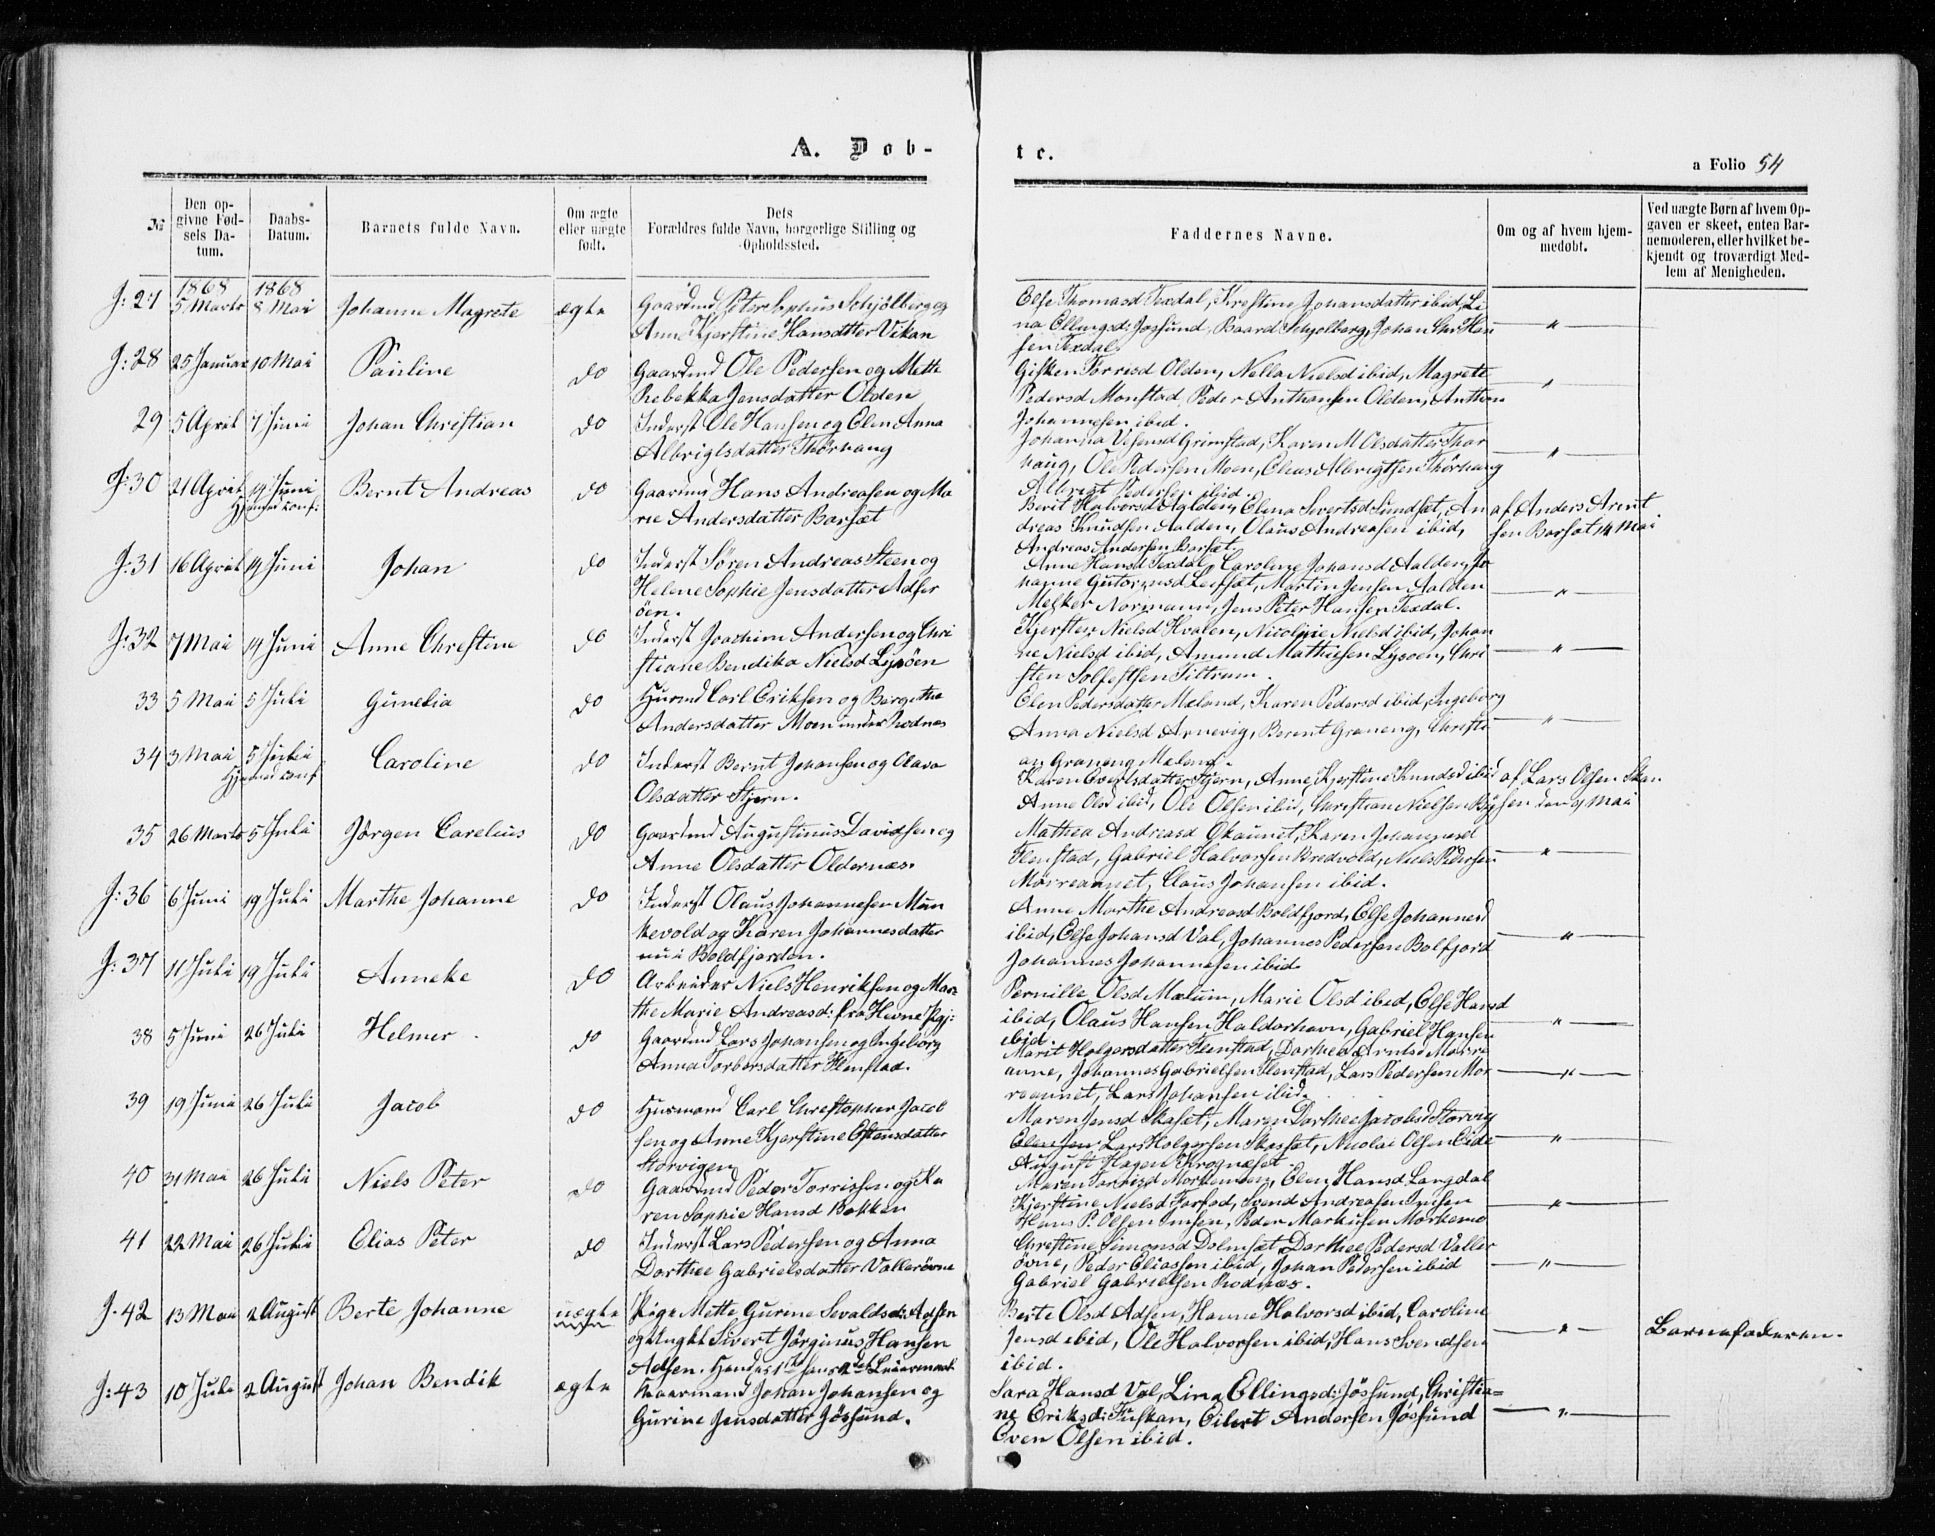 A. Døb-
te.
a Folio 54
№
Den opgivne Fødsels Datum.
Daabs-Datum.
Barnets fulde Navn.
Om ægte eller uægte født.
Dets Forældres fulde Navn, borgerlige Stilling og Opholdssted.
Faddernes Navne.
Om og af hvem hjemmedøbt.
Ved uægte Børn af hvem Opgaven er skeet, enten Barnemoderen, eller hvilket bekjendt og troværdigt Medlem af Menigheden.
1868 1868
5 Marts 8 Mai Johanne Magrete ægte
Anne Kjerstine Hansdatter Vikan
Elsе Thomasd Texdal, Johansdatter ibid, Li
na Ellingsd: Jøssund, Baard Schjølberg, Johan Chr Han
sen Texdal.
J: 28 25 Januar 10 Mai Pauline do Gaardmd Ole Pedersen og Mette
Rebekka Jensdatter Olden
Gisken Torrisd Olden, Nella Nielsd ibid, Magrete
Pedersd Monstad, Peder Anthonsen Olden, Anthon
Johannesen ibid.
29 5 April 7 Juni Johan Christian do Inderst Ole Hansen og Elen Anna
Johanna Grimstad, Karen M Olsdatter Thør
haug, Ole Pedersen Moen, Elias Albrigtsen Thørhaug
Albrigt Pedersen ibid.
J: 30 21 April 14 Juni Bernt Andreas do Gaardmd Hans Andreasen og Ma
Hjemmed Conf:
rie Andersdatter Barsæt
Berit Halvorsd Aalden, Elena Sivertsd Sundsæt, An
dreas Knudsen Aalden, Olaus Andreasen ibid,
Andreas Andersen Barsæt.
af Anders Arnt
sen Barsæt 14 Mai
J: 31 16 April 14 Juni Johan do Inderst Søren Andreas Steen og
Helene Sophie Jensdatter Adser
øen.
Anne Hansd Texdal, Caroline Johansd Aalden, Jo
hanne Gutormsd Leifsæt, Martin Jensen Aalden
Melker Normann, Jens Peter Hansen Texdal.
J: 32 7 Mai 14 Juni Anne Christine do Inderst Joachim Andersen og Chri
stiane Bendika Nielsd Lysøen
Nielsd Hvalen, Nicoline Nielsd ibid, Johan
ne Nielsd ibid, Amund Mathiesen Lysøen, Chri
sten Solfestsen Tiltrum.
33 5 Mai 5 Juli Gunelia do Husmd Carl Eriksen og Bergithe
Andersdatter Moen under Rodnæs
Elen Pedersdatter Mæland, Karen Pedersd ibid, Ingeborg
Anna Nielsd Arnevig, Bernt Graneng, Christi
an Graneng Mæland.
34 3 Mai 5 Juli Caroline do Inderst Bernt Johansen og Olava
Hjemmed Conf
Olsdatter Stjern.
Karen Evertsdatter Stjern, Anne Kjerstine Knudsd ibid
Anne Olsd ibid, Ole Olsen ibid, Christian Nielsen
af Lars Olsen
sen den 9 Mai
35 26 Marts 5 Juli Jørgen Carelius do Gaardmd Augustinus Davidsen og
Anne Olsdatter Oldernæs.
Mathea Andreasd Okaunet, Karen Johannesd
Flenstad, Gabriel Halvorsen Bredvold, Niels Pedersen
Morreaunet, Claus Johansen ibid.
J: 36 6 Juni 19 Juli Marthe Johanne do Inderst Olaus Johannesen Mun
kevold og Karen Johannesdatter
nu i Boldfjorden.
Anne Marthe Andreasd Boldfjord, Else Johannesd
ibid, Else Johansd Val, Johannes Pedersen Bolfjord
Johannes Johannesen ibid.
J: 37 11 Juli 19 Juli Anneke do Arbeider Niels Henriksen og Mar-
the Marie Andreasd: fra Hevne Pgj:
Pernille Olsd Mælum, Marie Olsd ibid, Else Hansd
ibid, Olaus Hansen Haldorhavn, Gabriel Hansen
ibid.
38 5 Juni 26 Juli Helmer do Gaardmd Lars Johansen og Ingeborg
Anna Torbersdatter Henstad.
Marit Holgersdatter Flenstad, Dorthea Arntsd Morre
aune, Johannes Gabrielsen Flenstad, Lars Pedersen Mor
reaunet, Lars Johansen ibid.
39 19 Juni 26 Juli Jacob do Husmand Carl Christopher Jacob
sen og Anne Kjerstine Estensdatter
Storvigen
Maren Jensd Skaset, Maren Dorthea Jacobsd Storvig
Lars Holgersen Skaset, Nicolai Olsen Eide
August Hagen Krognæset
40 31 Mai 26 Juli Niels Peter do Gaardmd Peder Torrissen og Ka
ren Sophie Hansd Bakken
Maren Torrisd Morkemo, Elen Hansd Langdal
Kjerstine Nielsd Forfod, Svend Andreasen Imsen
Hans P. Olsen Imsen, Peder Markusen Morkemo
41 22 Mai 26 Juli Elias Peter do Inderst Lars Pedersen og Anna
Dorthee Gabrielsdatter Vallerøvne
Christine Simonsd Dolmsæt, Dorthee Pedersd Valler
øvne, Peder Eliassen ibid, Johan Pedersen ibid
Gabriel Gabrielsen Rodnæs.
J. 42 13 Mai 2 August Berte Johanne uægte Pige Mette Gurine Sevaldsd: Adsen
og Ungkl Sivert Jørginus Hansen
Adsen. Hendes 1ste hans 2det Leiermaal
Berte Olsd Adsen, Hanne Halvorsd ibid, Caroline
Jensd ibid, Ole Halvorsen ibid, Hans Svendsen
ibid.
Barnefaderen.
J: 43 10 Juli 2 August Johan Bendik ægte Kaarmand Johan Johansen og
Gurine Jensdatter Jøssund.
Sara Hansd Val, Lina Ellingsd: Jøssund, Christia-
ne Eriksd: Fuskan, Eilert Andersen Jøssund
Even Olsen ibid.